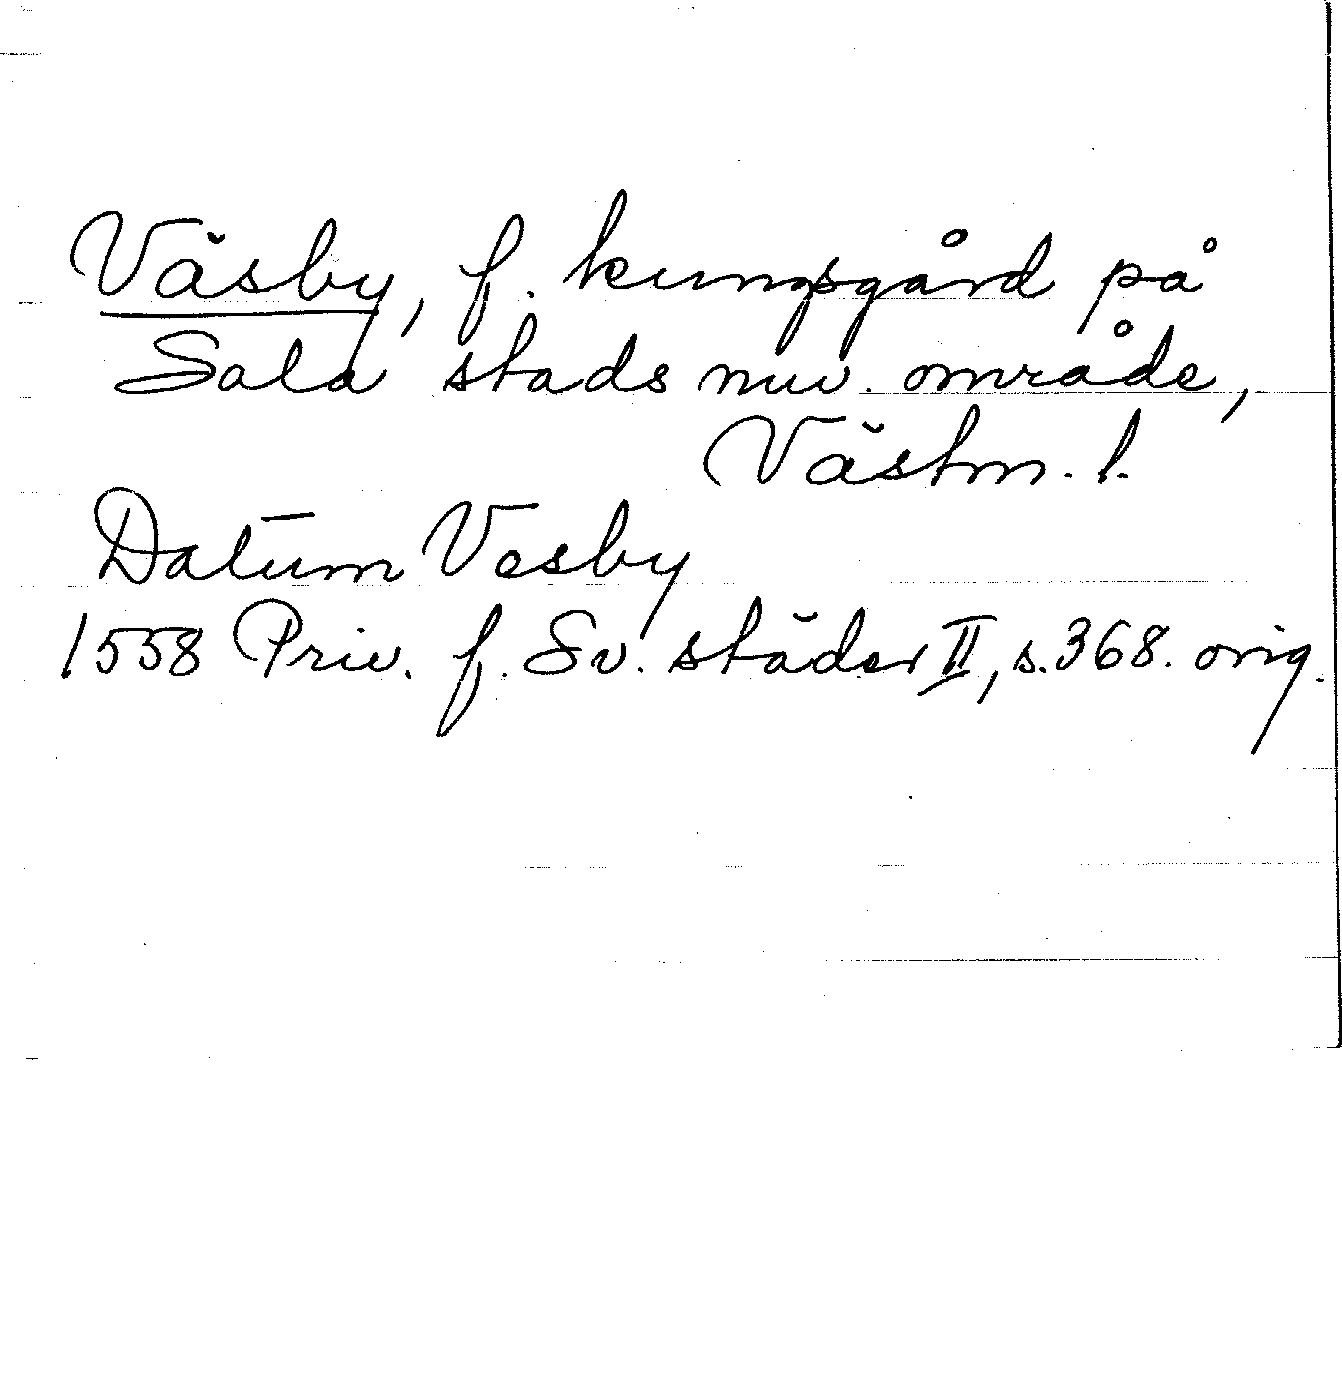 Väsby, f. kungsgård på
Sala stads nuv. område,
Västm. l.
Datum Vesby
1558 Priv. f. Sv. städer II, s. 368. orig.